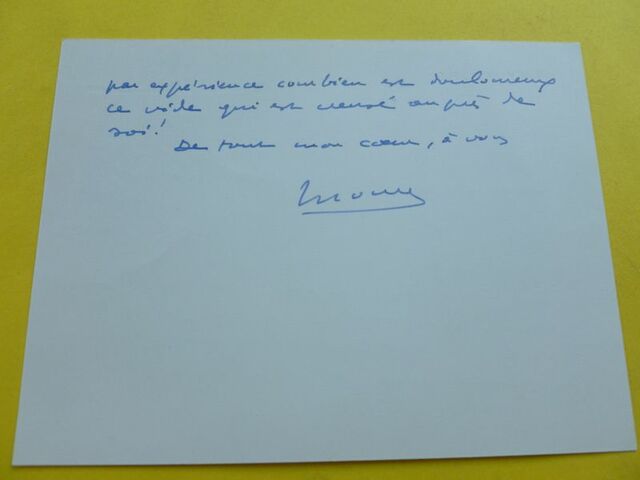 par expérience combien est douloureux
ce vide qui est creusé auprès de
soi!
De tout mon cœur, à vous